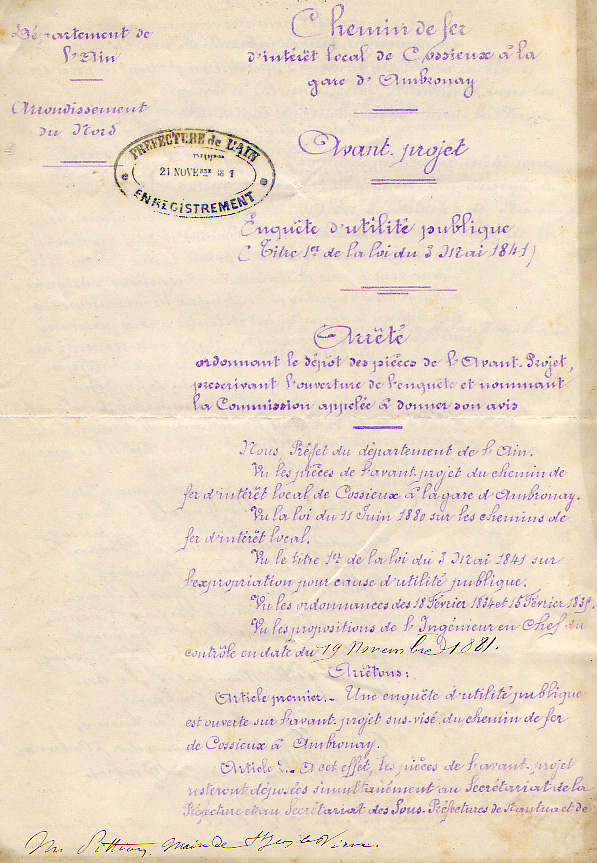 Département de
l'Ain
Arrondissement
du Nord
PREFECTURE de L'AIN
21 NOVEBRE 1881
ENREGISTREMENT
Chemin de fer
d'intérêt local de Cossieux à la
gare d'Ambronay
Avant-projet
Enquête d'utilité publique
(Titre 1er de la loi du 3 Mai 1841)
Arrêté
ordonnant le dépôt des pièces de l'Avant-Projet,
prescrivant l'ouverture de l'enquête et nommant
la Commission appelée à donner son avis
Nous, Préfet du département de l'Ain.
Vu les pièces de l'avant-projet du chemin de
fer d'intérêt local, de Cossieux à la gare d'Ambronay.
Vu la loi du 11 Juin 1880 sur les chemins de
fer d'intérêt local.
Vu le titre 1er de la loi du 3 Mai 1841 sur
l'expropriation pour cause d'utilité publique.
Vu les ordonnances des 18 Février 1834 et 15 Février 1835.
Vu les propositions de l'Ingénieur en Chef du
contrôle en date du 19 Novembre 1881.
Arrêtons:
Article premier. - Une enquête d'utilité publique
est ouverte sur l'avant-projet sus-visé du chemin de fer
de Cossieux à Ambronay.
Article 2. - A cet effet, les pièces de l'avant-projet
resteront déposées simultanément au Secrétariat de la
Préfecture et au Secrétariat des Sous-Préfectures de Nantua et de
Mr Maire de